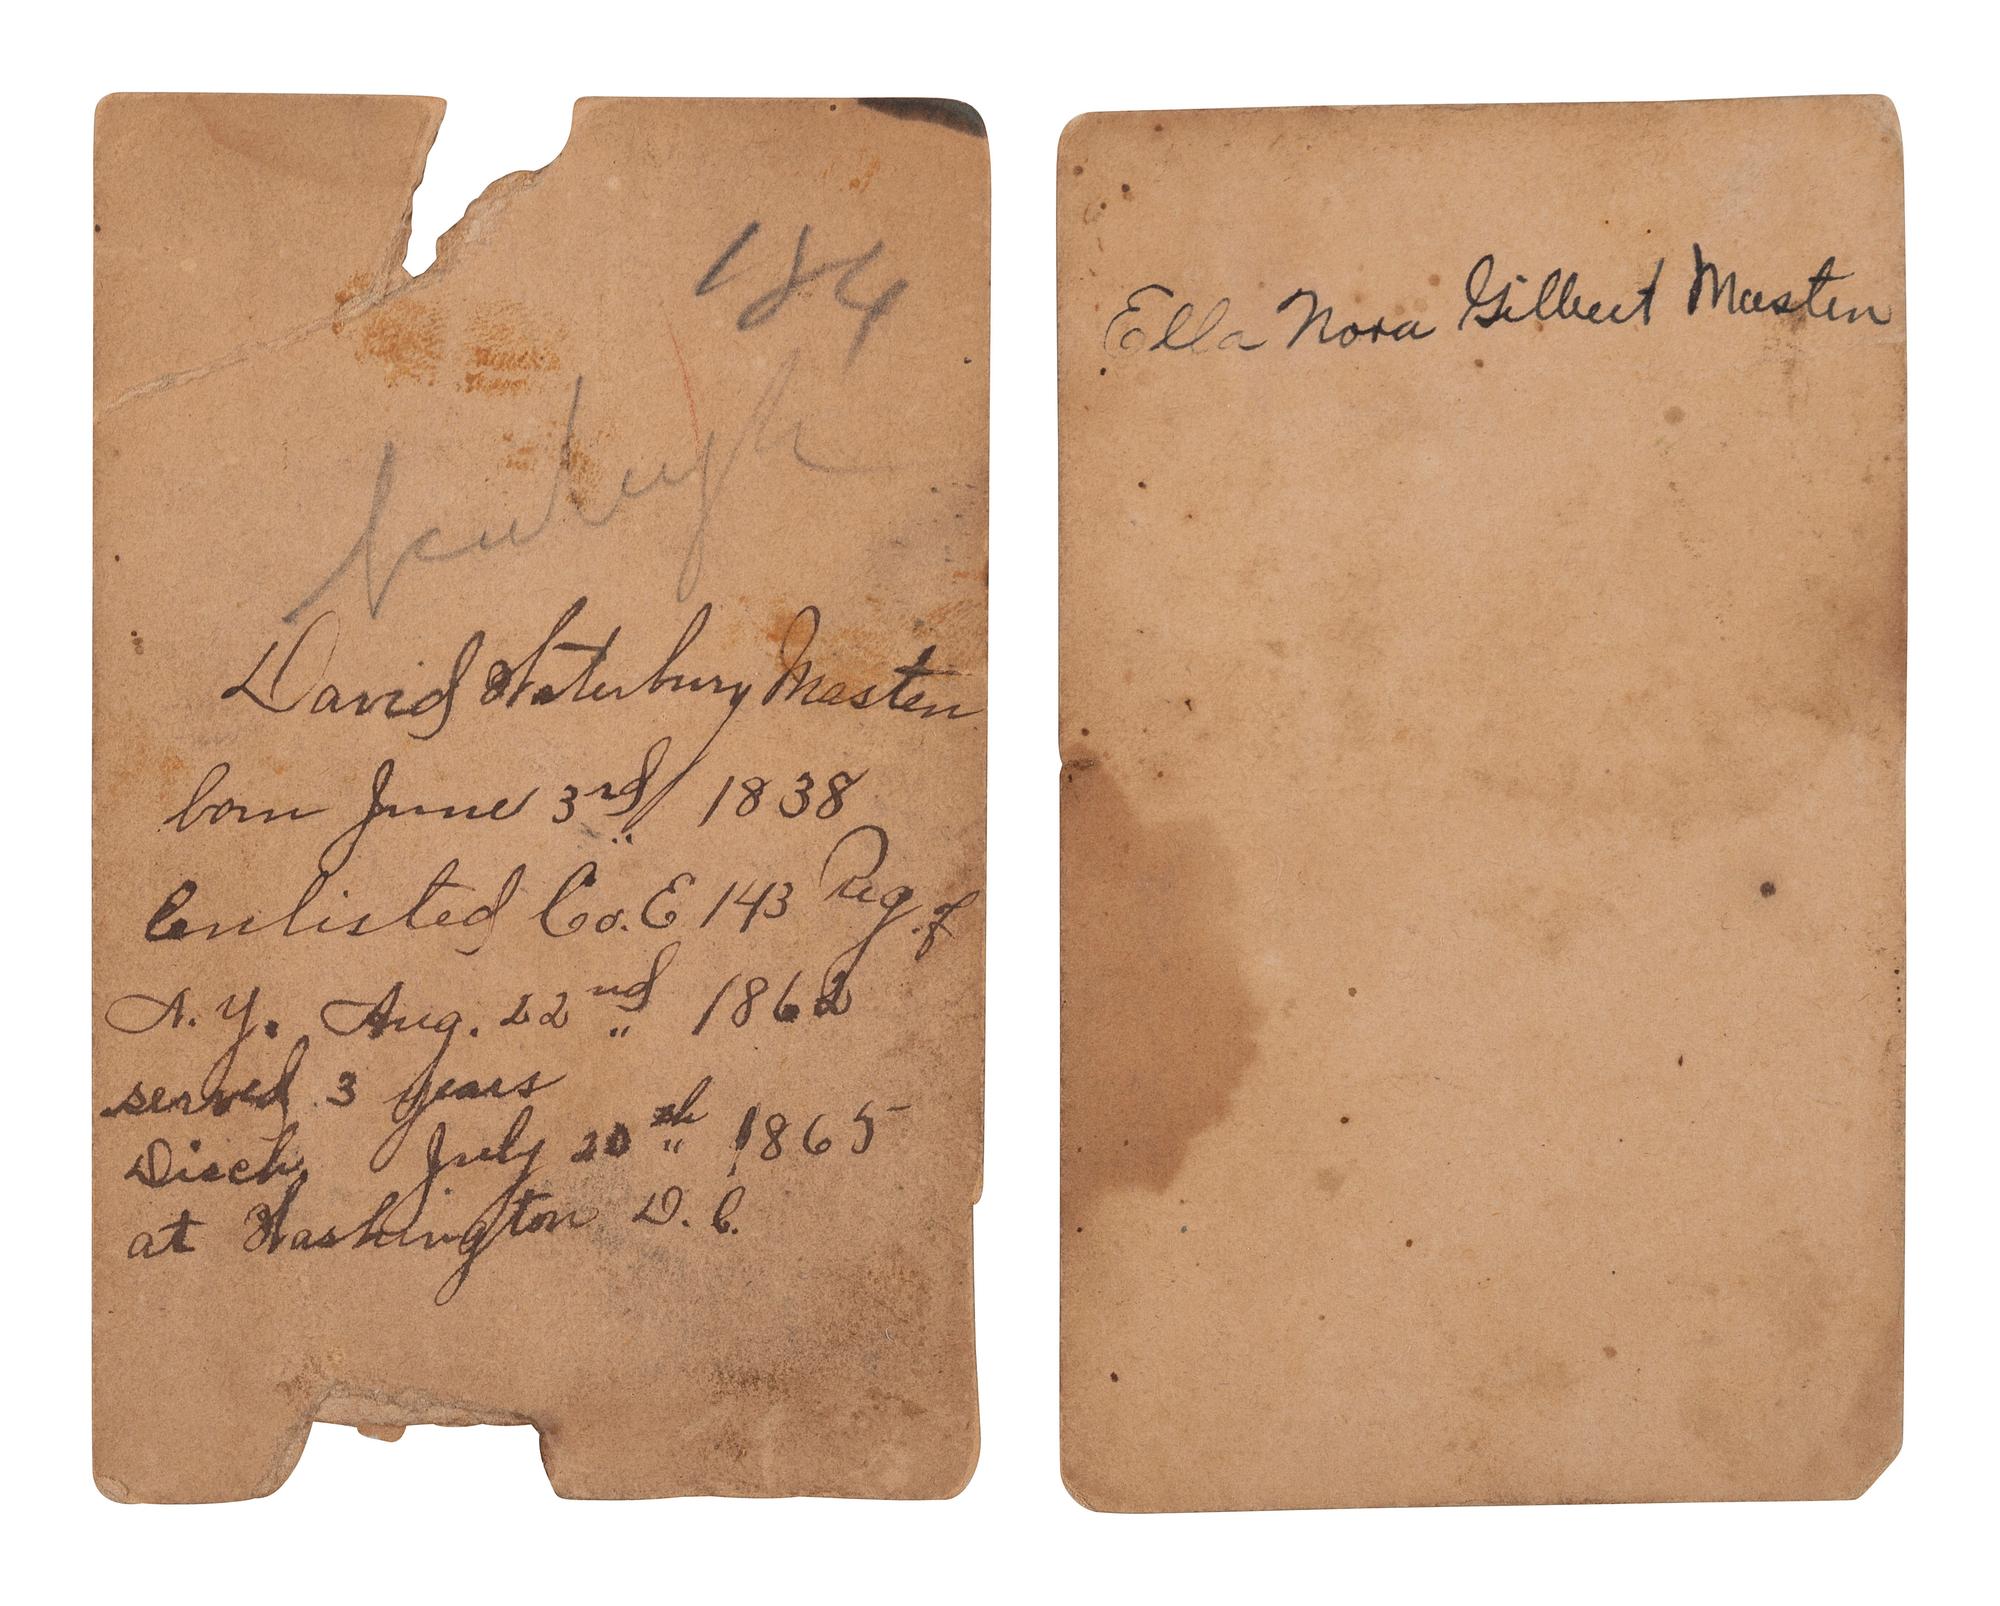 184
David Waterbury Masten
born June 3rd 1838
Enlisted Co. E 143 Reg. of
N.Y. Aug. 22nd 1862
served 3 years
Disch. July 20th 1865
at Washington D.C.
Ella Nora Gilbert Masten